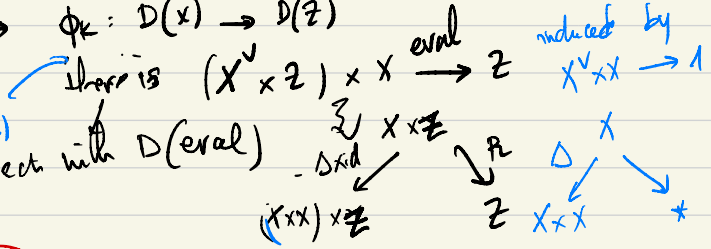 → ϕ_K : D(X) → D(Z)
there is (X^∨ × Z) × X → Z eval induced by X^∨ × X → 1
X × Z X
ect with D(eval) Δ×id Δ
(X×X) × Z Z X×X *